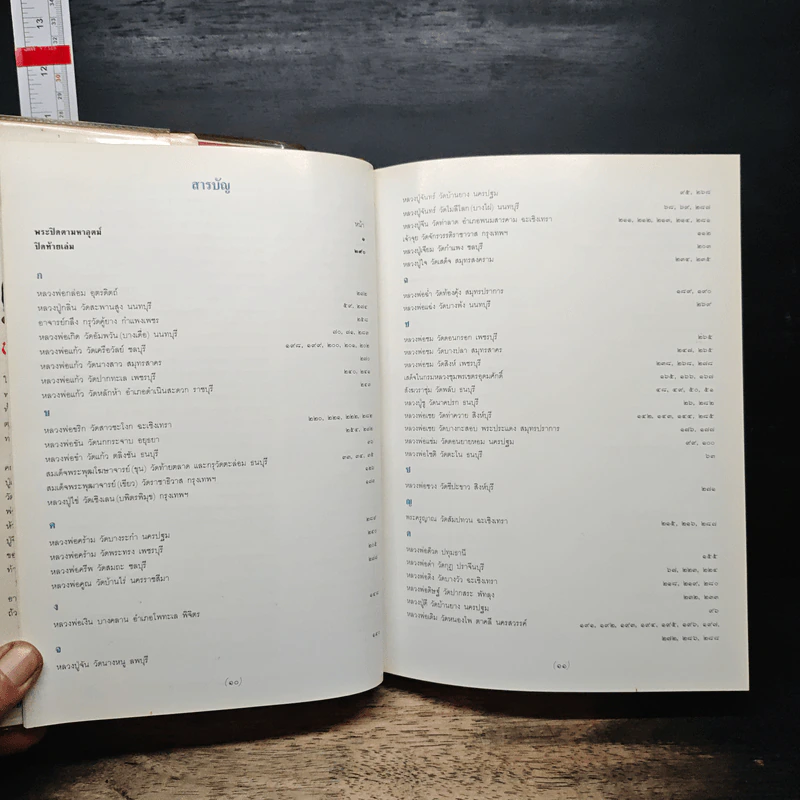 สารบัญ
หน้า
พระปิดตามหาอุตม์ ๑
ปิดท้ายเล่ม ๒๙๖
ก
หลวงพ่อกล่อม อุตรดิตถ์
หลวงปู่กลิ่น วัดสะพานสูง นนทบุรี ๕๙, ๒๘๔
อาจารย์กลึง กรุวัดคู้ยาง กำแพงเพชร ๒๕๘
หลวงพ่อเกิด วัดอัมพวัน (บางเดื่อ) นนทบุรี ๗๐, ๗๑, ๒๘๖
หลวงพ่อแก้ว วัดเครือวัลย์ ชลบุรี ๑๙๘, ๑๙๙, ๒๐๐, ๒๐๑, ๒๐๒
หลวงพ่อแก้ว วัดนางสาว สมุทรสาคร ๒๓๐
หลวงพ่อแก้ว วัดปากทะเล เพชรบุรี ๒๔๐, ๒๔๑
หลวงพ่อแก้ว วัดหลักห้า อำเภอดำเนินสะดวก ราชบุรี
ข
หลวงพ่อขริก วัดสาวชะโงก ฉะเชิงเทรา ๒๒๐, ๒๒๑, ๒๒๒
หลวงพ่อขัน วัดนกกระจาบ อยุธยา
หลวงพ่อขำ วัดแก้ว ตลิ่งชัน ธนบุรี
สมเด็จพระพุฒโฆษาจารย์ (ขุน) วัดท้ายตลาด และกรุวัดตะล่อม ธนบุรี ๓๓, ๓๔, ๓๕
สมเด็จพระพุฒาจารย์ (เขียว) วัดราชาธิวาส กรุงเทพฯ
หลวงปู่ไข่ วัดเชิงเลน (บพิตรพิมุข) กรุงเทพฯ
ค
หลวงพ่อคร้าม วัดบางระกำ นครปฐม
หลวงพ่อคร้าม วัดพระทรง เพชรบุรี
หลวงพ่อครีพ วัดสมถะ ชลบุรี
หลวงพ่อคูณ วัดบ้านไร่ นครราชสีมา
ง
หลวงพ่อเงิน บางคลาน อำเภอโพทะเล พิจิตร
จ
หลวงปู่จัน วัดนางหนู ลพบุรี
(๑๐)
หลวงปู่จันทร์ วัดบ้านยาง นครปฐม ๙๕, ๒๖๘
หลวงปู่จันทร์ วัดโมลีโลก (บางไผ่) นนทบุรี ๖๘, ๖๙, ๒๘๘
หลวงปู่จีน วัดท่าลาด อำเภอพนมสารคาม ฉะเชิงเทรา ๒๑๑, ๒๑๒, ๒๑๓, ๒๑๔, ๒๘๑
เจ้าจุย วัดจักรวรรดิราชาวาส กรุงเทพฯ ๑๑๒
หลวงปู่เจียม วัดกำแพง ชลบุรี ๒๐๓
หลวงปู่ใจ วัดเสด็จ สมุทรสงคราม ๒๓๔, ๒๓๕
ฉ
หลวงพ่อฉ่ำ วัดท้องคุ้ง สมุทรปราการ ๑๘๙, ๑๙๐
หลวงพ่อแฉ่ง วัดบางพัง นนทบุรี ๒๖๙
ช
หลวงพ่อชม วัดดอนกรอก เพชรบุรี ๒๖๕
หลวงพ่อชม วัดบางปลา สมุทรสาคร ๒๔๗, ๒๖๕
หลวงพ่อชม วัดสิงห์ เพชรบุรี ๒๓๘, ๒๖๘, ๒๘๖
เสด็จในกรมหลวงชุมพรเขตรอุดมศักดิ์ ๑๖๕, ๑๖๖, ๑๖๗
สังฆวราชุ่ม วัดพลับ ธนบุรี ๔๘, ๔๙, ๕๐, ๕๑
หลวงปู่ชู วัดนาคปรก ธนบุรี ๒๖, ๒๘๒
หลวงพ่อเชย วัดท่าควาย สิงห์บุรี ๑๕๒, ๑๕๓, ๑๕๔, ๒๘๕
หลวงพ่อเชย วัดบางกะสอบ พระประแดง สมุทรปราการ ๑๘๖, ๑๘๘
หลวงพ่อแช่ม วัดดอนยายหอม นครปฐม ๙๙, ๑๐๐
หลวงพ่อโชติ วัดตะโน ธนบุรี ๖๓
ซ
หลวงพ่อซวง วัดชีปะขาว สิงห์บุรี ๒๘๑
ญ
พระครูญาณ วัดสัมปทวน ฉะเชิงเทรา ๒๑๕, ๒๑๖, ๒๘๘
ด
หลวงพ่อด้วด ปทุมธานี ๑๕๕
หลวงพ่อดำ วัดกุฏ ปราจีนบุรี ๖๗, ๒๒๓, ๒๒๔
หลวงพ่อดิง วัดบางวัว ฉะเชิงเทรา ๒๑๘, ๒๑๙, ๒๘๐
หลวงพ่อดิษฐ์ วัดปากสระ พัทลุง ๒๓๒, ๒๓๓
หลวงปู่ดี วัดบ้านยาง นครปฐม ๙๖
หลวงพ่อเดิม วัดหนองโพ ตาคลี นครสวรรค์ ๑๙๑, ๑๙๒, ๑๙๓, ๑๙๔, ๑๙๕, ๑๙๖, ๑๙๗,
๒๘๒, ๒๘๖, ๒๘๘
(๑๑)